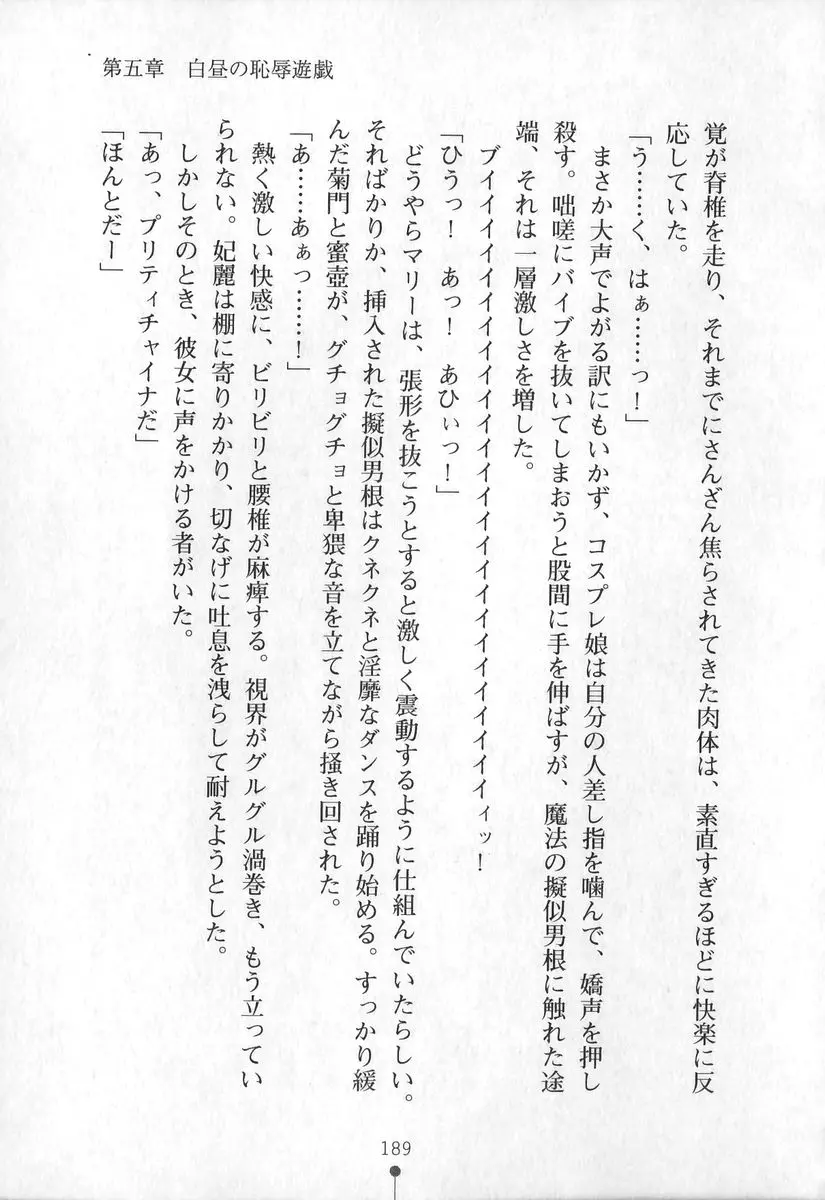 第五章　白昼の恥辱遊戯
覚が脊椎を走り、それまでにさんざん焦らされてきた肉体は、素直すぎるほどに快楽に反
応していた。
「う……く、はぁ……っ！」
　まさか大声でよがる訳にもいかず、コスプレ娘は自分の人差し指を噛んで、嬌声を押し
殺す。咄嗟にバイブを抜いてしまおうと股間に手を伸ばすが、魔法の擬似男根に触れた途
端、それは一層激しさを増した。
　ブイイイイイイイイイイイイイイイイイイイイイイイイイィッ！
「ひうっ！　あっ！　あひぃっ！」
　どうやらマリーは、張形を抜こうとすると激しく震動するように仕組んでいたらしい。
そればかりか、挿入された擬似男根はクネクネと淫靡なダンスを踊り始める。すっかり緩
んだ菊門と蜜壺が、グチョグチョと卑猥な音を立てながら掻き回された。
「あ……あぁっ……！」
　熱く激しい快感に、ビリビリと腰椎が麻痺する。視界がグルグル渦巻き、もう立ってい
られない。妃麗は棚に寄りかかり、切なげに吐息を洩らして耐えようとした。
　しかしそのとき、彼女に声をかける者がいた。
「あっ、プリティチャイナだ」
「ほんとだー」
189